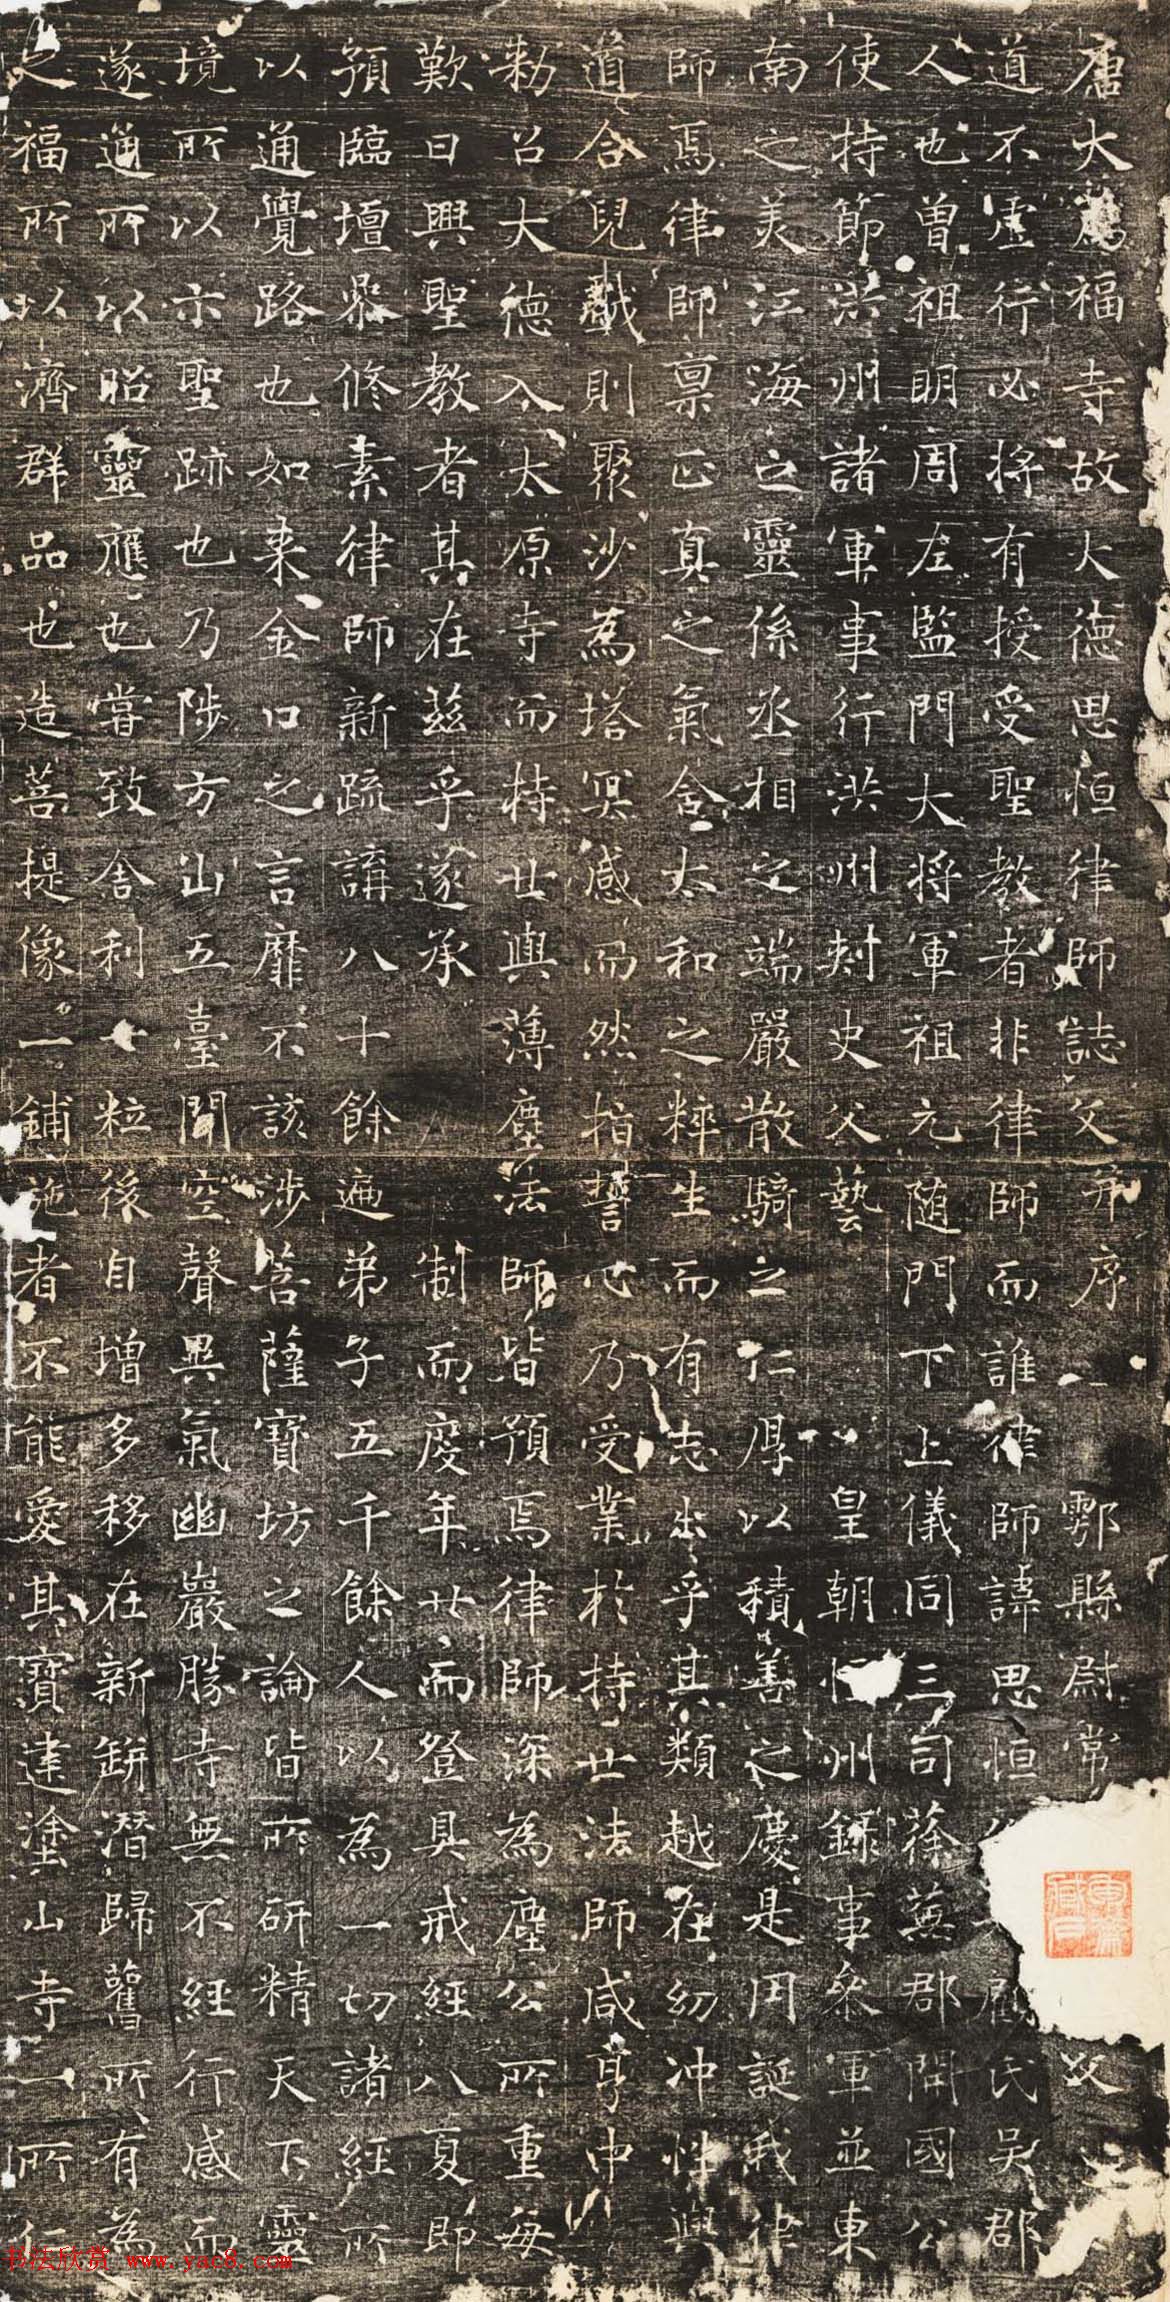 唐大薦福寺故大德思恒律師誌文并序 鄠縣尉常 文
道不虛行必將有授受聖教者非律師而誰律師諱思恒俗 顧氏吳郡
人也曾祖明周左監門大將軍祖元隨門下上儀同三司蒢蕪郡開國公
使持節洪州諸軍事行洪州刺史父藝 皇朝恒州錄事參軍並東
南之美江海之靈係丞相之端嚴散騎之仁厚以積善之慶是用誕我律
師焉律師禀正真之氣含太和之粹生而有志出乎其類越在幼沖性與
道合兒戲則聚沙為塔冥感而然指誓心乃受業於持世法師咸亨中
勑召大德入太原寺而持世與薄塵法師皆預焉律師深為塵公所重每
歎曰興聖教者其在茲乎遂承 制而度年廿而登具戒經八夏即
預臨壇叅修素律師新疏講八十餘遍弟子五千餘人以為一切諸經所
以通覺路也如来金口之言靡不該涉菩薩寶坊之論皆所研精天下靈
境所以示聖跡也乃陟方山五臺間空聲異氣幽巖勝寺無不經行感而
遂通所以昭靈應也嘗致舍利一粒後自增多移在新缾潛歸舊所有為
之福所以濟群品也造菩提像一鋪施者不能愛其寶建塗山寺一所行
书法欣赏 www.yac8.com